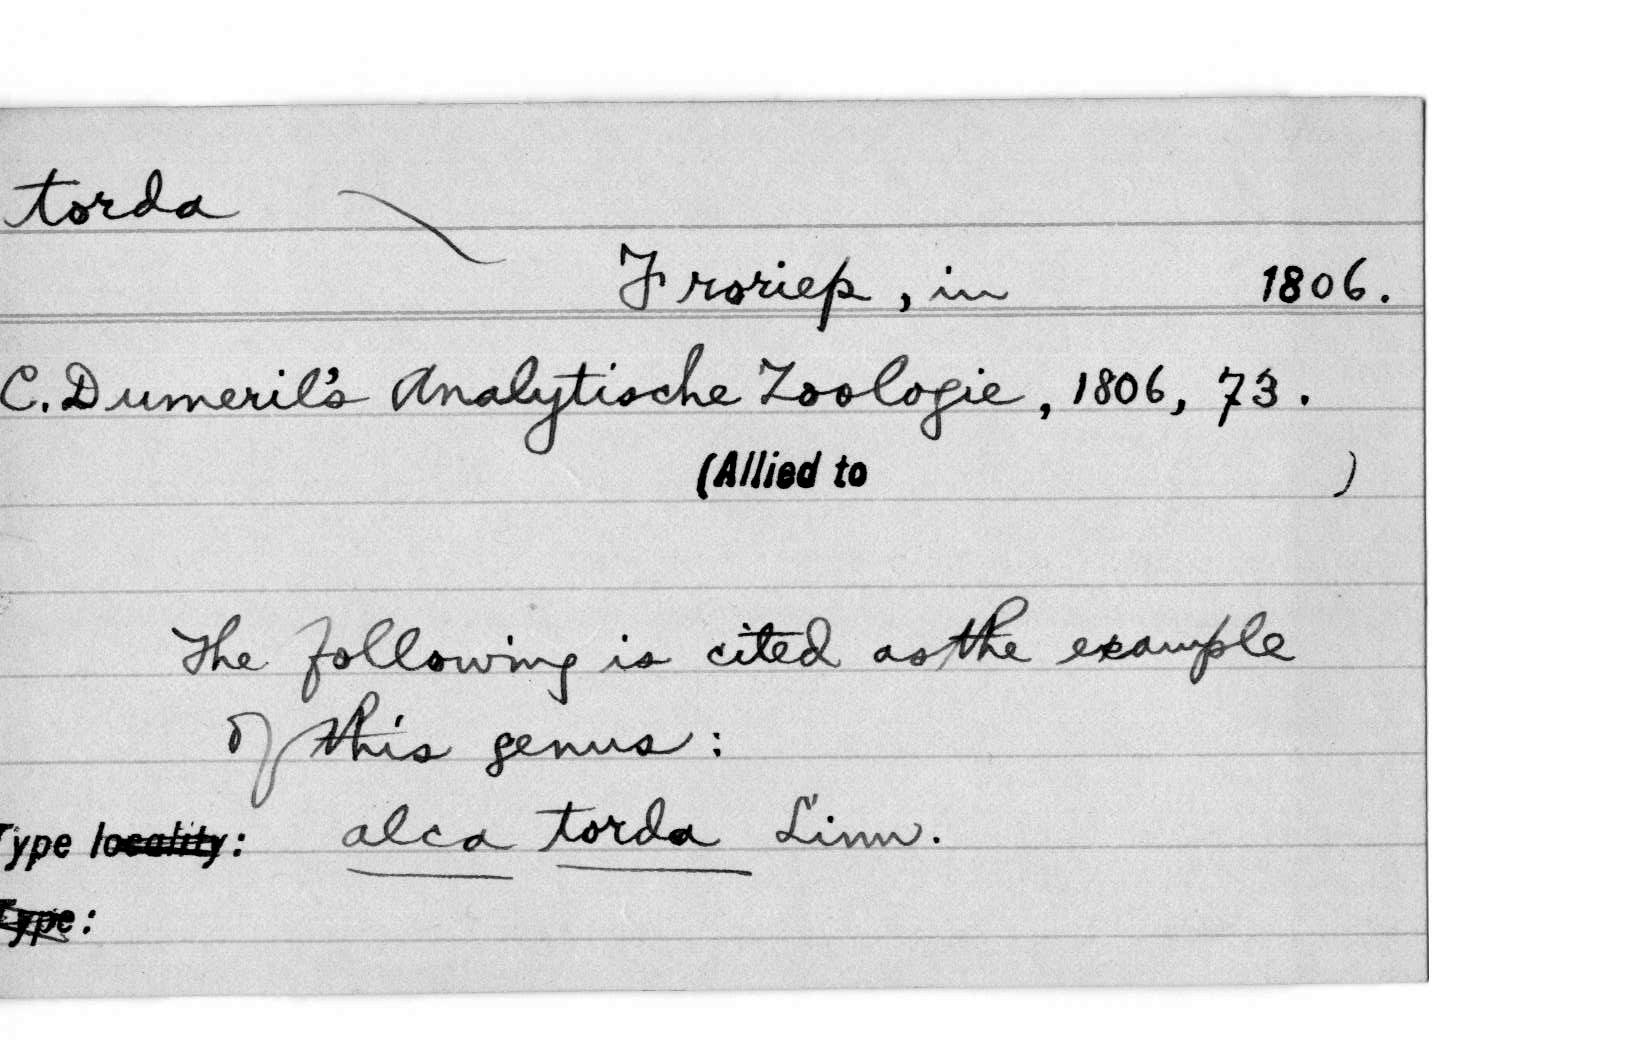 torda
Froriep, in 1806.
C. Dumeril's Analytische Zoologie, 1806, 73.
(Allied to )
The following is cited as the example
of this genus:
Type locality: alca torda Linn.
Type: